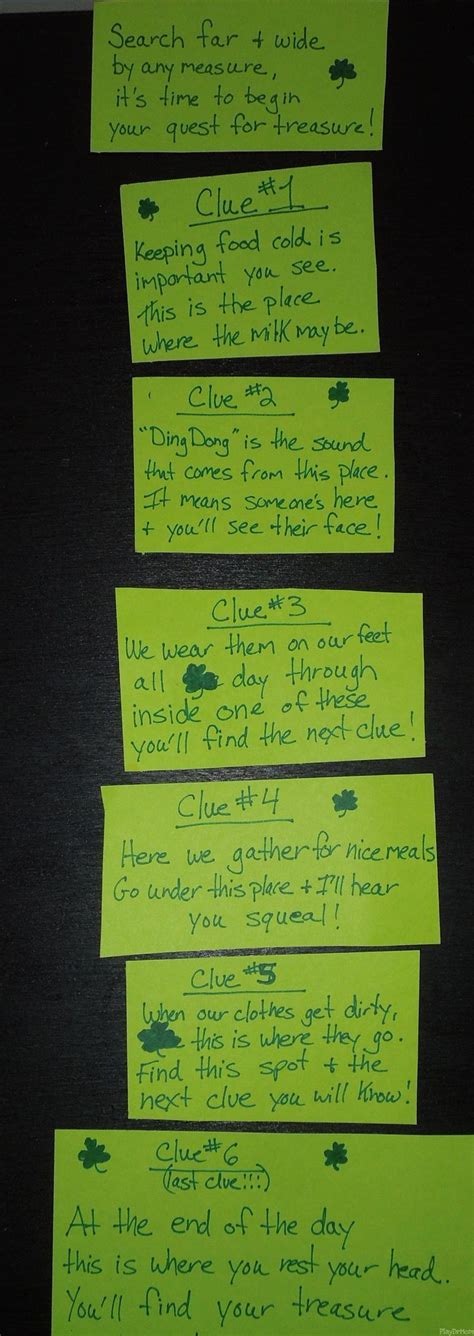 Search far + wide
by any measure,
it's time to begin
your quest for treasure!
Clue #1
Keeping food cold is
important you see.
This is the place
where the milk may be.
Clue #2
"Ding Dong" is the sound
that comes from this place.
It means someone's here
+ you'll see their face!
Clue #3
We wear them on our feet
all day through
inside one of these
you'll find the next clue!
Clue #4
Here we gather for nice meals
Go under this place + I'll hear
you squeal!
Clue #5
When our clothes get dirty,
this is where they go.
Find this spot + the
next clue you will know!
Clue #6
(last clue!!!)
At the end of the day
this is where you rest your head.
You'll find your treasure